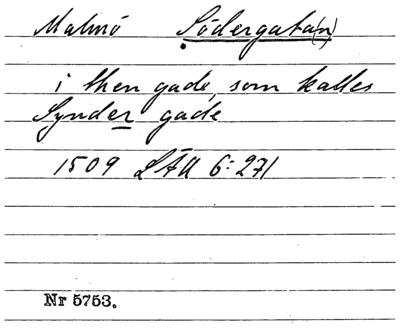 Malmö Södergata(n)
i then gade, som kalles
Synder gade
1509 LÄU 6:271
Nr 5753.